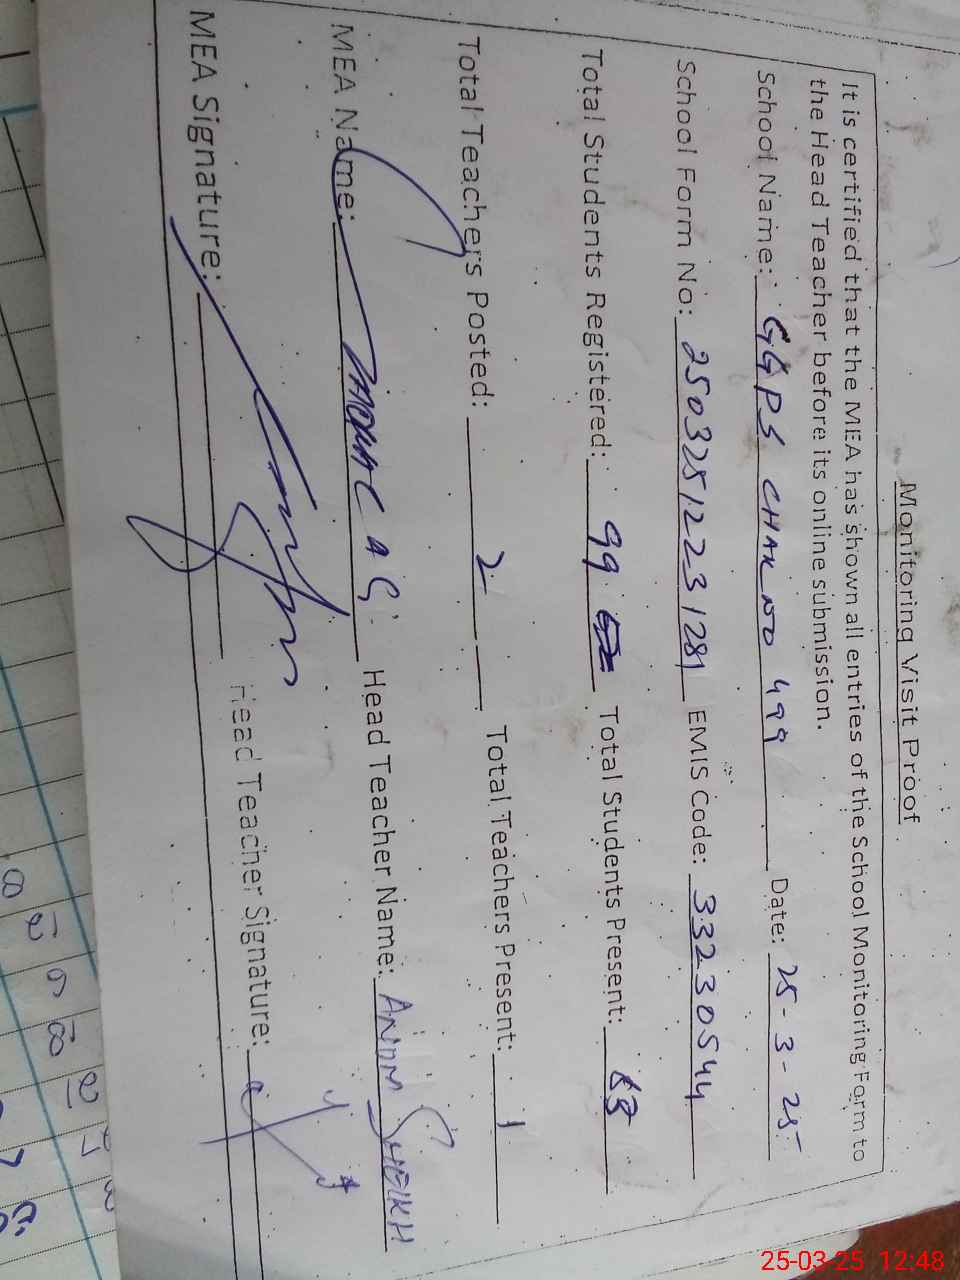 Monitoring Visit Proof
It is certified that the MEA has shown all entries of the School Monitoring Form to
the Head Teacher before its online submission.
School Name: GGPS CHAK NO 499 Date: 25-3-25
School Form No: 25032512231281 EMIS Code: 33230544
Total Students Registered: 99 Total Students Present: 63
Total Teachers Posted: 2 Total Teachers Present: 1
MEA Name: Head Teacher Name: ANUM SHEIKH
MEA Signature: Head Teacher Signature:
25-03-25 12:48